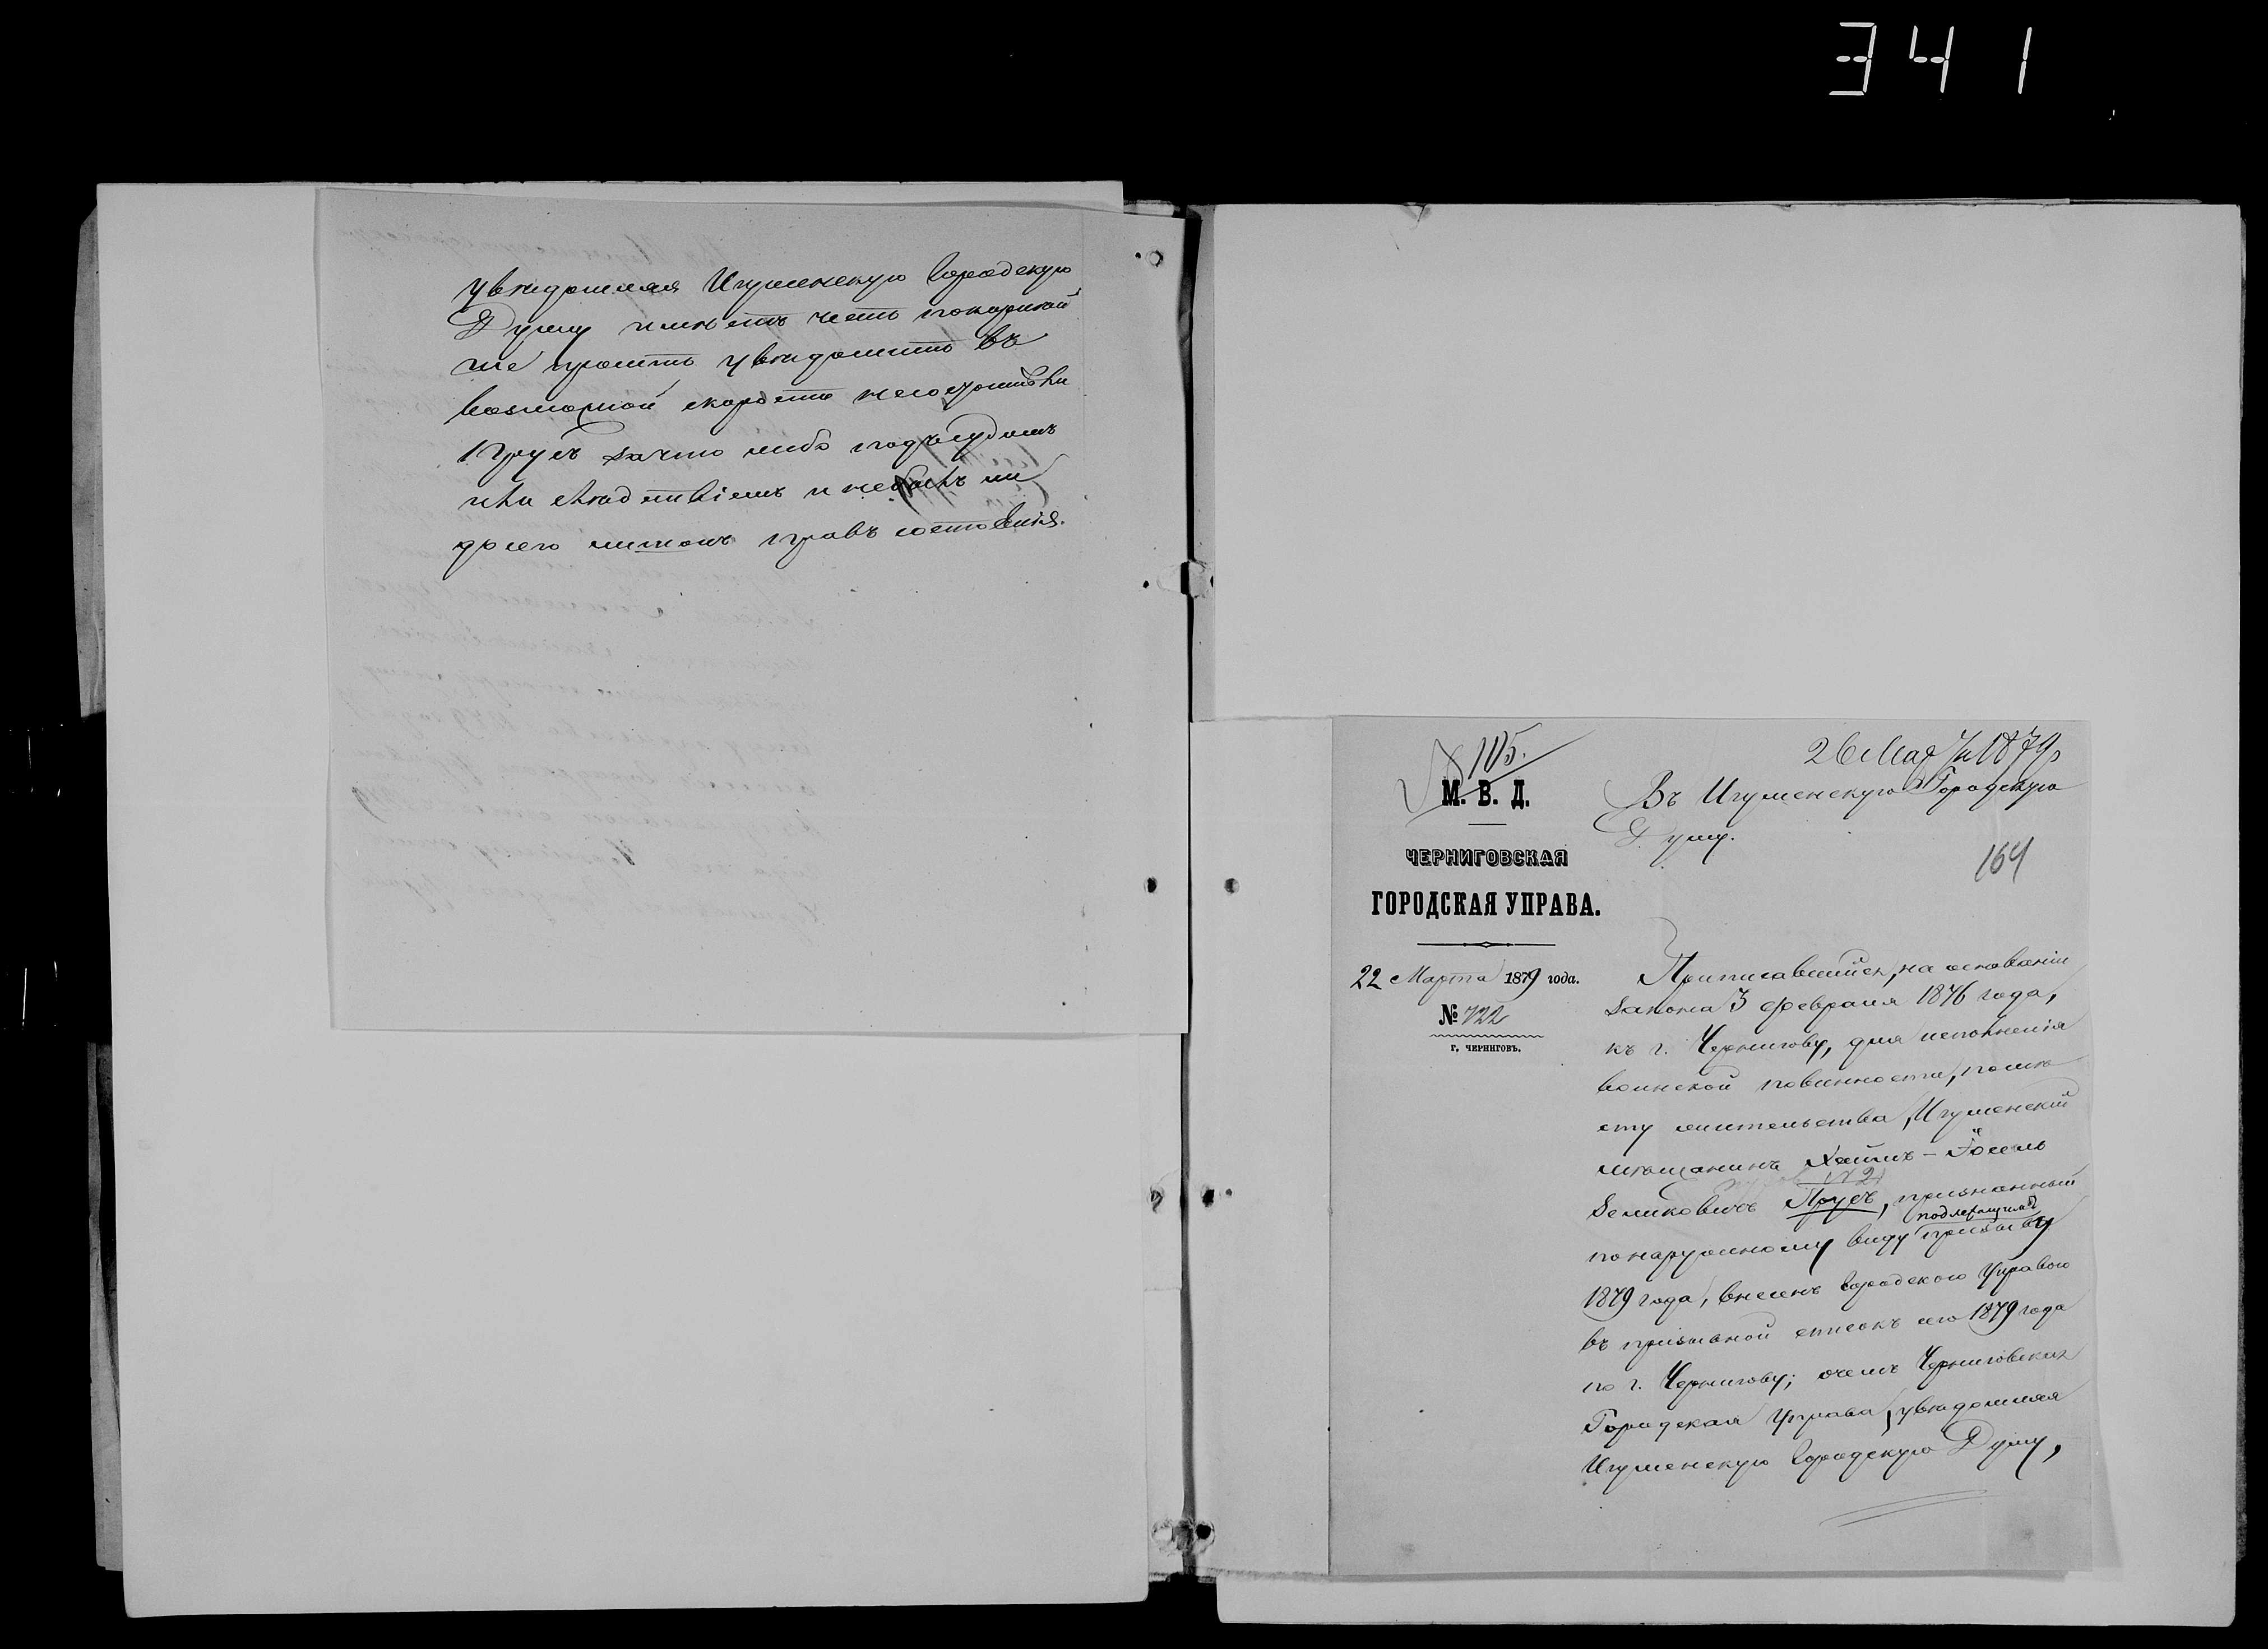 341
увѣдомляя Игуменскую Городскую
Думу имѣетъ честь покорнѣй
ше просить увѣдомить въ
возможной скорости не состоитъ ли
Прусъ за что либо подъ судомъ
или слѣдствіемъ и не былъ ли
до сего лишонъ правъ состоянія.
№ 105.
26 Мар 1879
М. В. Д.
ЧЕРНИГОВСКАЯ
ГОРОДСКАЯ УПРАВА.
22 Марта 1879 года.
№ 722
г. ЧЕРНИГОВЪ.
Въ Игуменскую Городскую
Думу.
164
Приписавшійся, на основаніи
закона 3 февраля 1876 года,
къ г. Чернигову, для исполненія
воинской повинности, по мѣ
сту жительства, Игуменскій
мѣщанинъ Хаимъ-Іосель
Зеликовичъ Прусъ, признанный
по наружному виду подлежащимъ призыву
1879 года, внесенъ Городскою Управою
въ призывной списокъ сего 1879 года
по г. Чернигову; о чемъ Черниговская
Городская Управа, увѣдомляя
Игуменскую Городскую Думу,